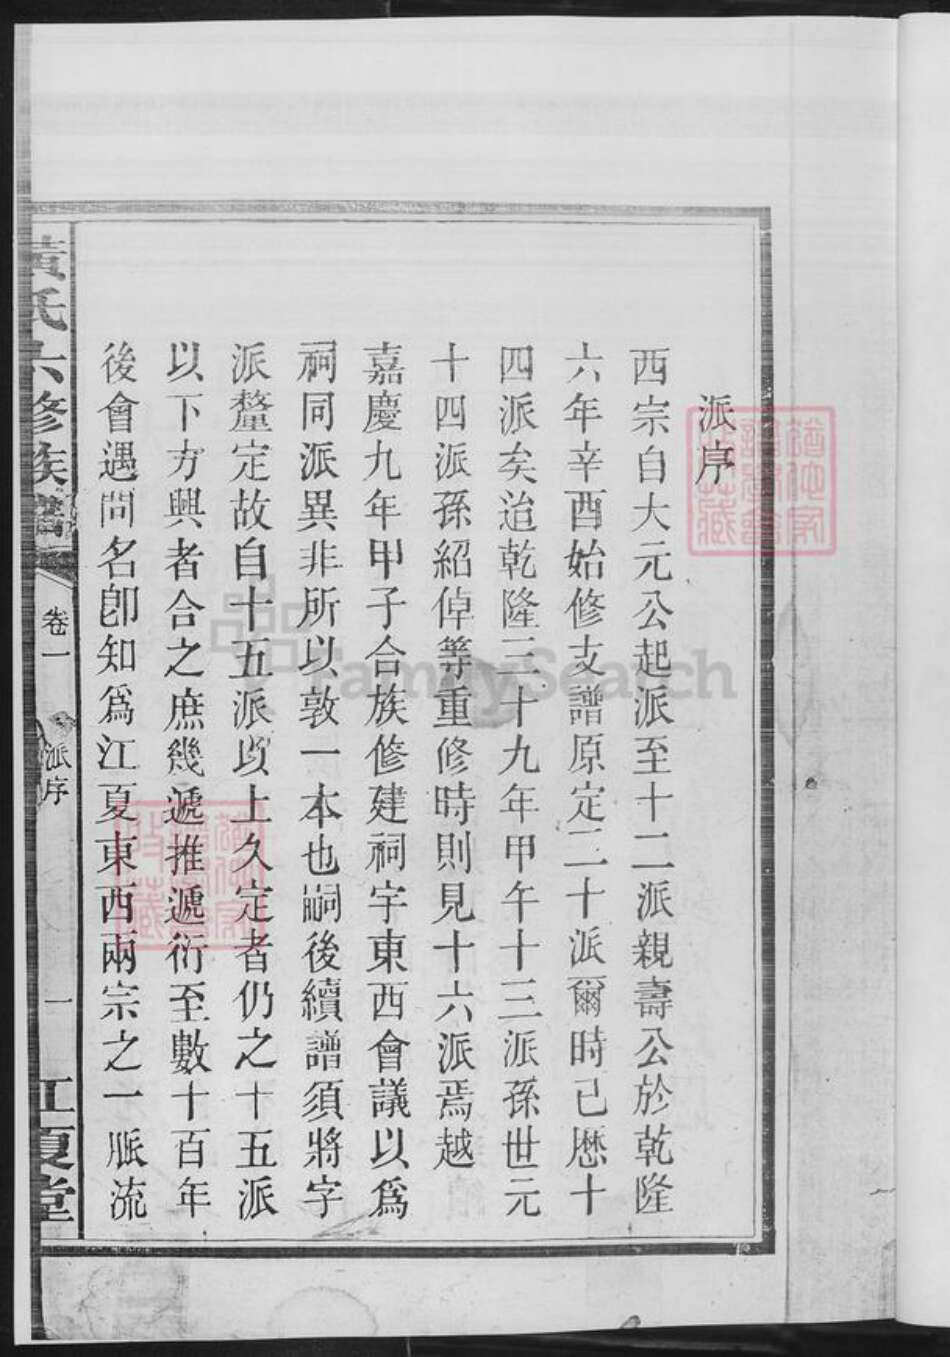 派序
西宗自大元公起派至十二派親壽公於乾隆
六年辛酉始修支譜原定二十派爾時已歷十
四派矣迨乾隆三十九年甲午十三派孫世元
十四派孫紹倬等重修時則見十六派焉越
嘉慶九年甲子合族修建祠宇東西會議以爲
祠同派異非所以敦一本也嗣後續譜須將字
派釐定故自十五派以上久定者仍之十五派
以下方興者合之庶幾遞推遞衍至數十百年
後會遇問名卽知爲江夏東西兩宗之一脈流
黃氏六修族譜
卷一
派序
一
江夏堂
FamilySearch